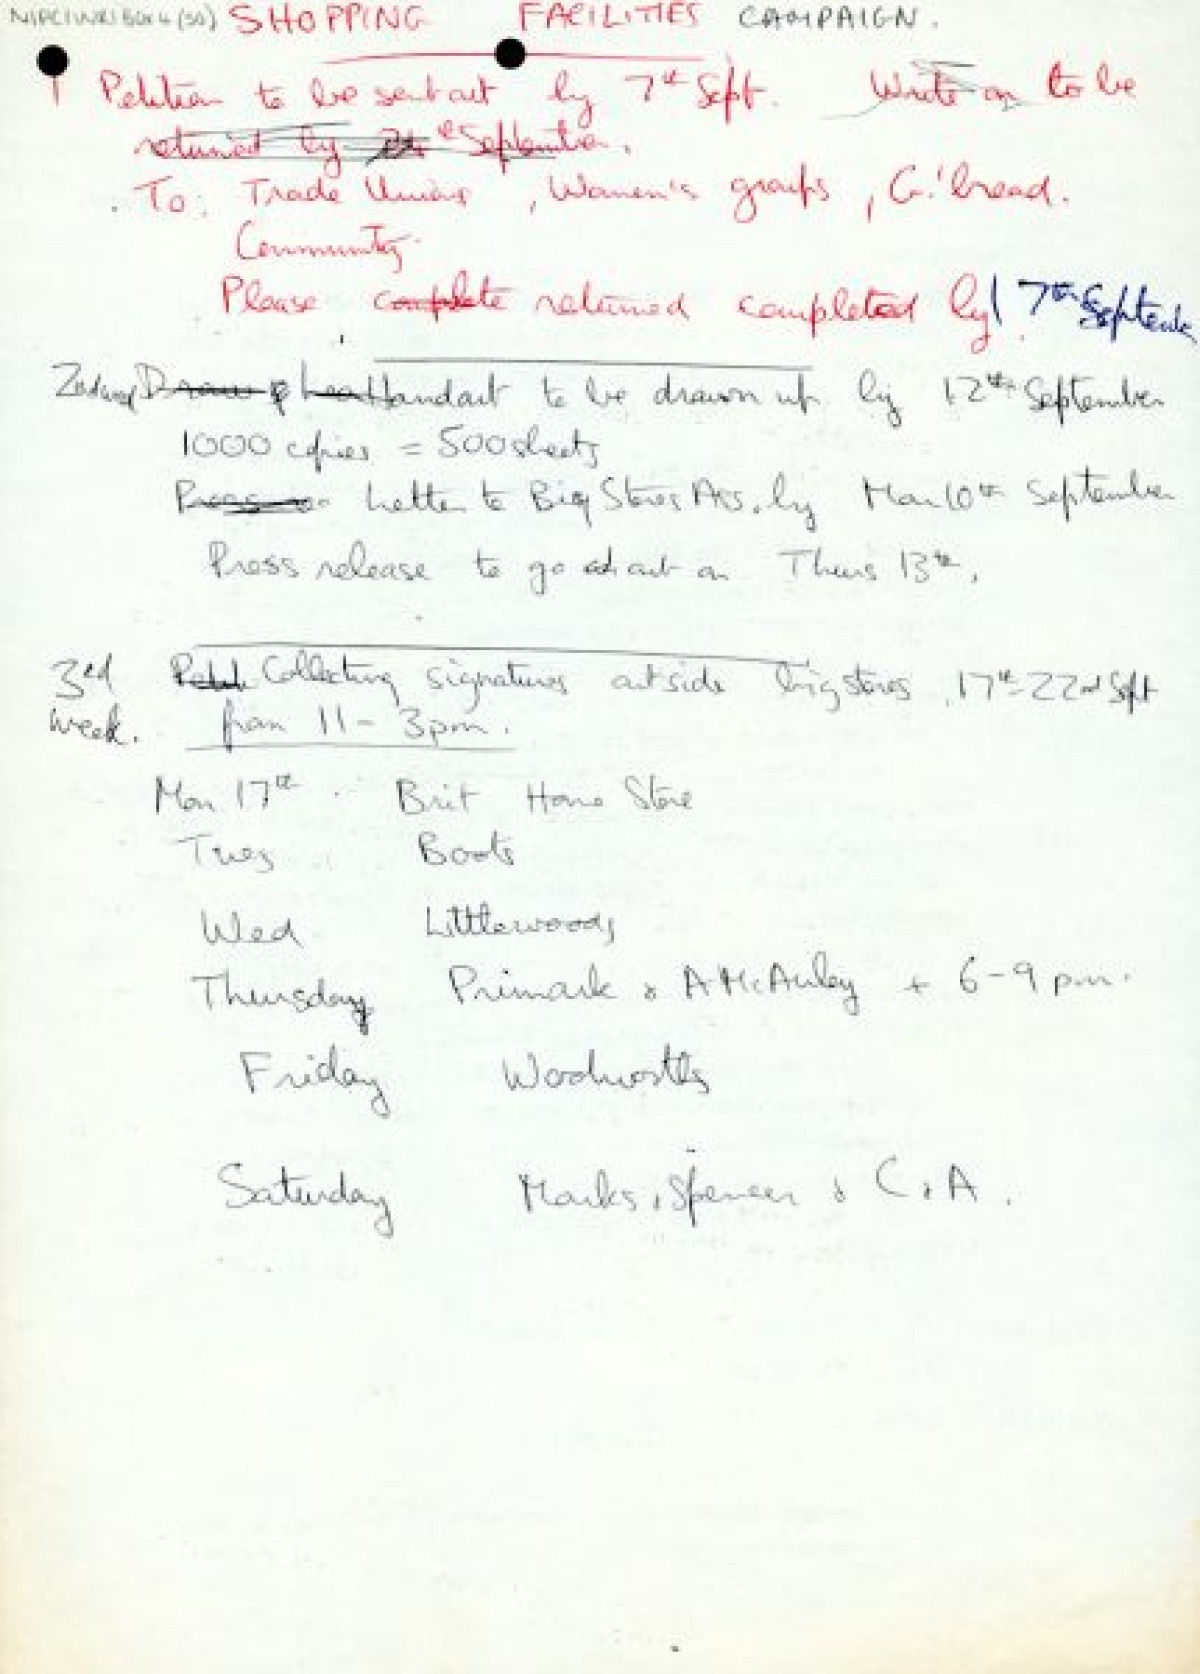 SHOPPING FACILITIES CAMPAIGN.
Petition to be sent out by 7th Sept. Write on to be
returned by September.
To: Trade Unions, Women's groups, G'bread.
Community
Please complete returned completed by 7th Septemb
Handout to be drawn up by 12th September
1000 copies = 500 sheets
Press Letter to Big Stores Ass. by Mon 10th September
Press release to go out on Thurs 13th.
3rd Collecting signatures outside big stores, 17th-22nd Sept
week. from 11 - 3pm.
Mon 17th Brit Home Store
Tues Boots
Wed Littlewoods
Thursday Primark & A McAuley + 6-9 pm.
Friday Woolworths
Saturday Marks, Spencer & C & A.